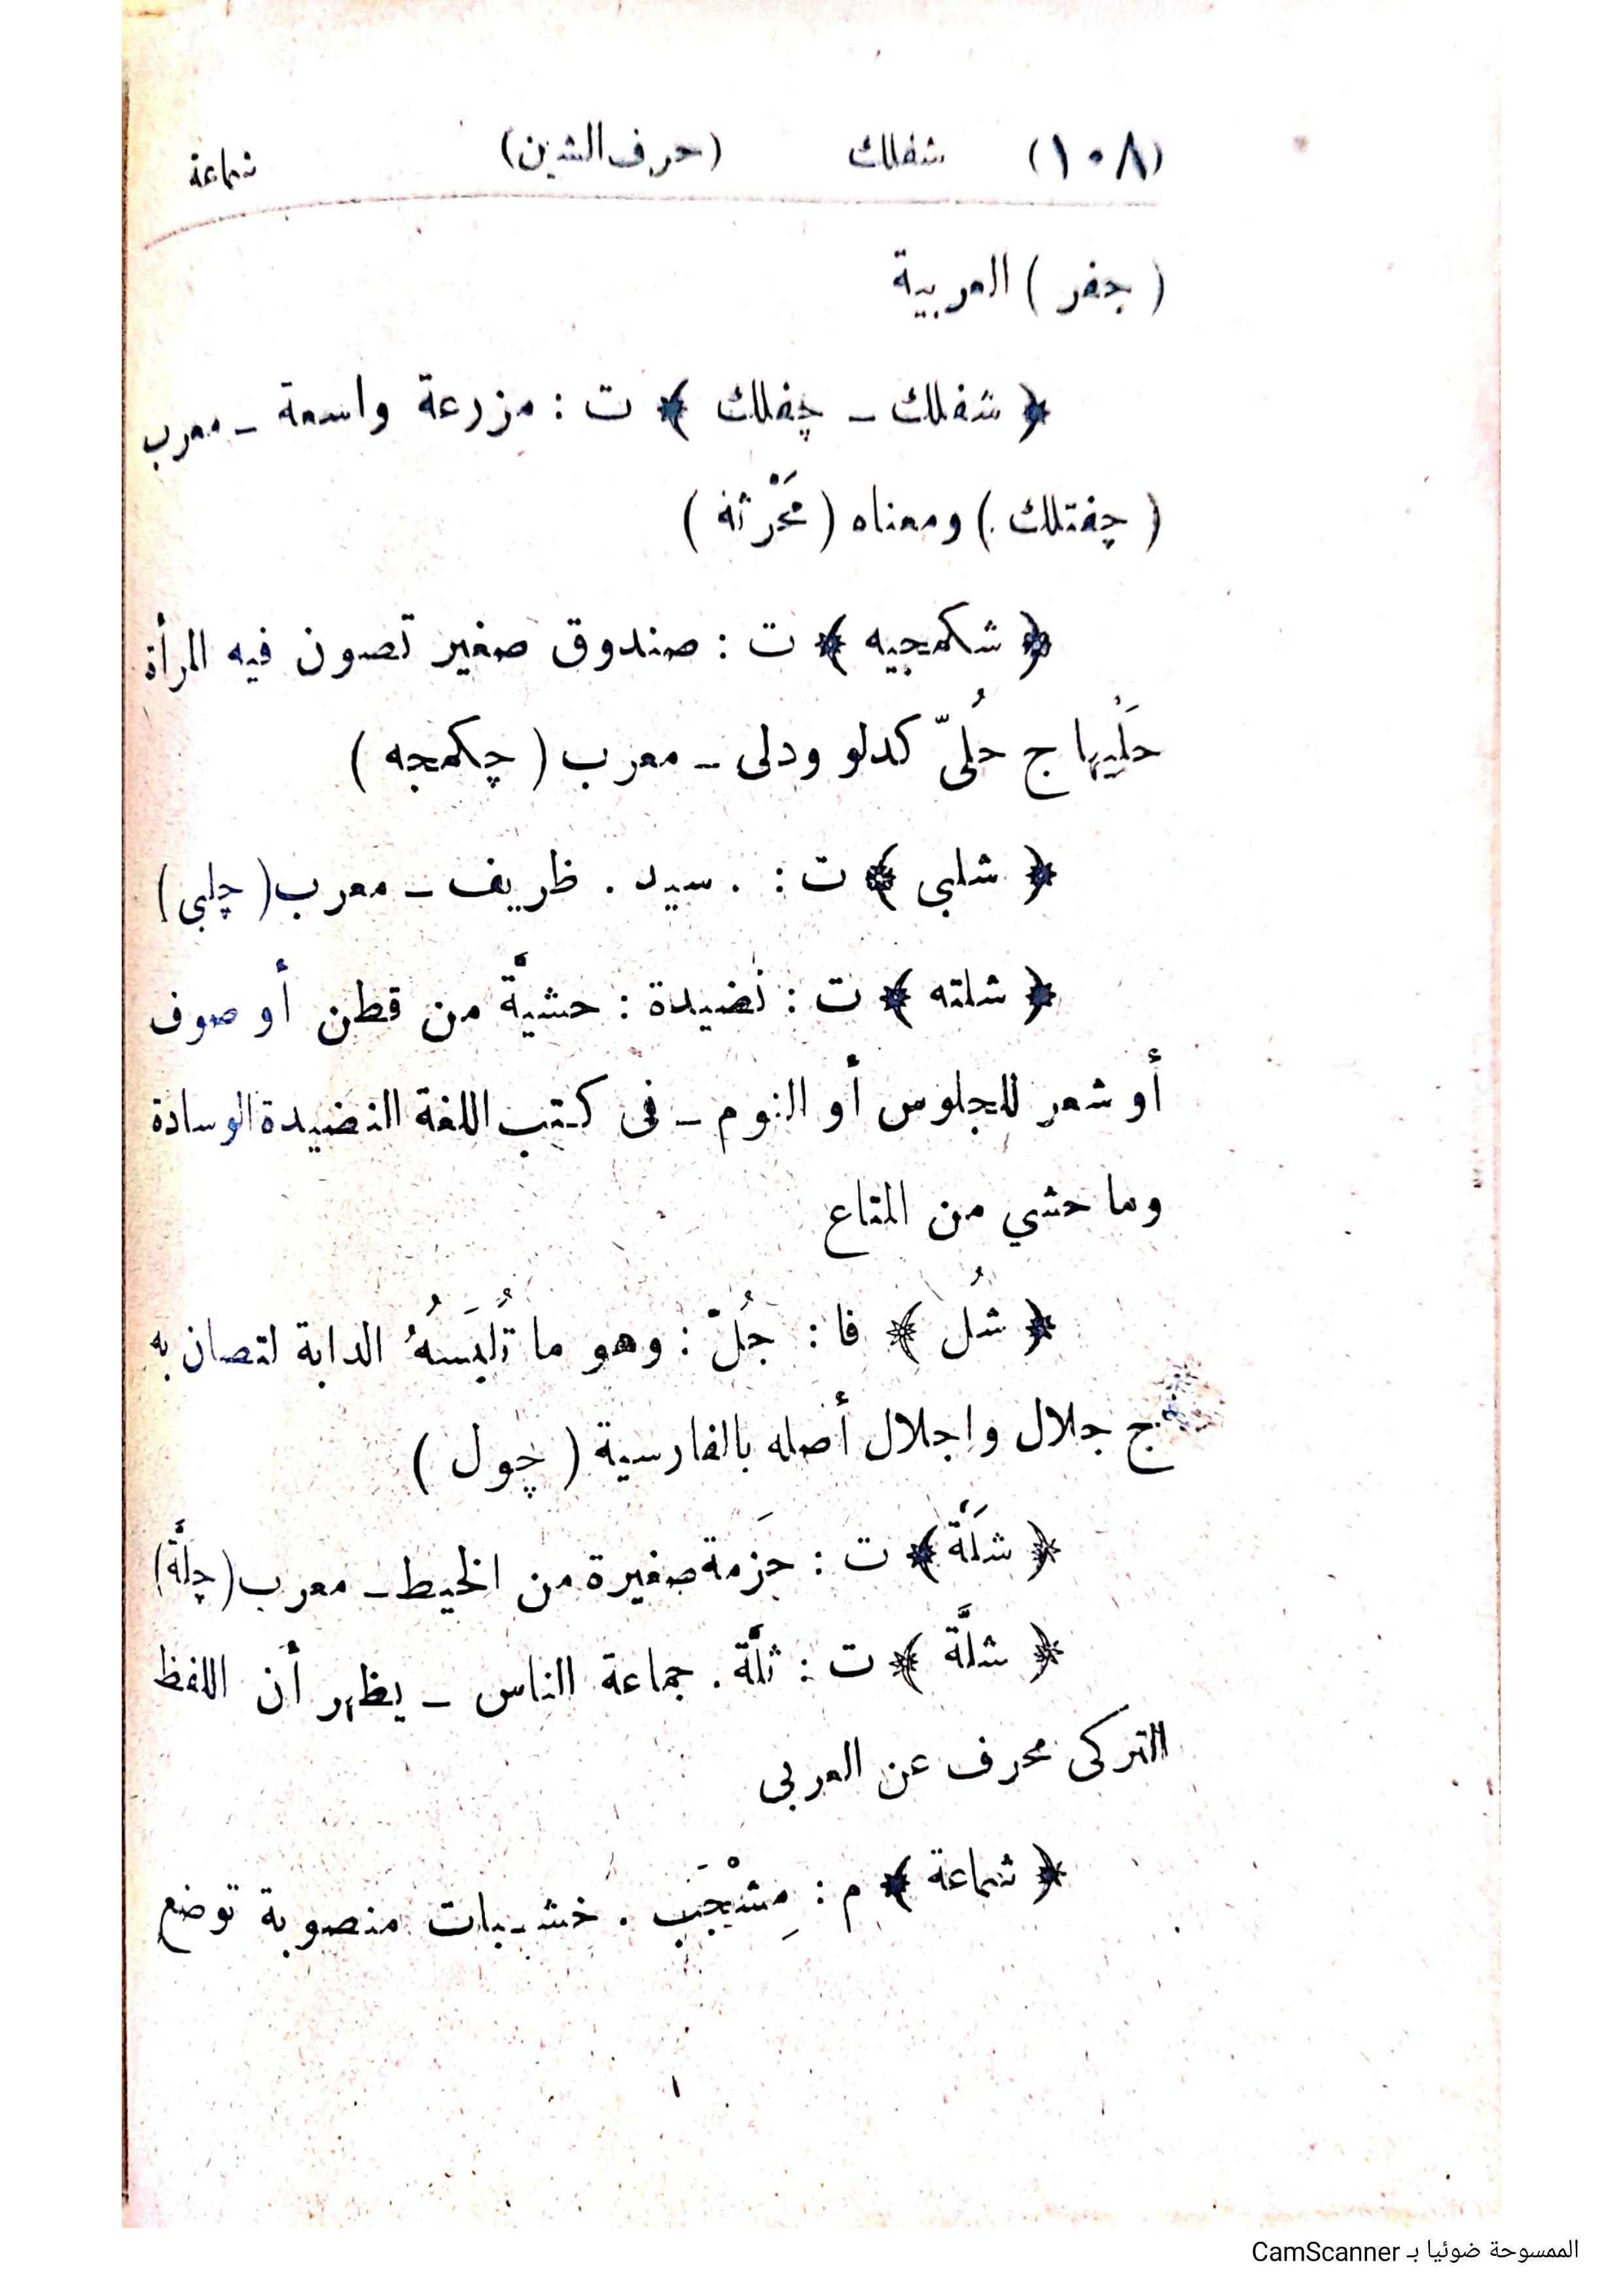 (١٠٨) شفلك (حرف الشين) شماعة
( جفر ) العربية
﴿ شفلك – چفلك ﴾ ت : مزرعة واسعة – معرب
( چفتلك ) ومعناه ( مَحْرثة )
﴿ شكمجيه ﴾ ت : صندوق صغير تصون فيه المرأة
حَلْيها ج حُلىّ كدلو ودلى – معرب ( چكمجه )
﴿ شلبى ﴾ ت : . سيد . ظريف – معرب ( چلبى )
﴿ شلته ﴾ ت : نضيدة : حشيَّة من قطن أو صوف
أو شعر للجلوس أو النوم – فى كتب اللغة النضيدة الوسادة
وما حشي من المتاع
﴿ شُل ﴾ فا : جُلّ : وهو ما تُلبَسهُ الدابة لتصان به
ج جلال واجلال أصله بالفارسية ( چول )
﴿ شلَّة ﴾ ت : حَزمة صغيرة من الخيط – معرب ( چلَّة )
﴿ شلَّة ﴾ ت : ثلَّة . جماعة الناس – يظهر أن اللفظ
التركى محرف عن العربى
﴿ شماعة ﴾ م : مِشْجَب . خشبات منصوبة توضع
الممسوحة ضوئيا بـ CamScanner